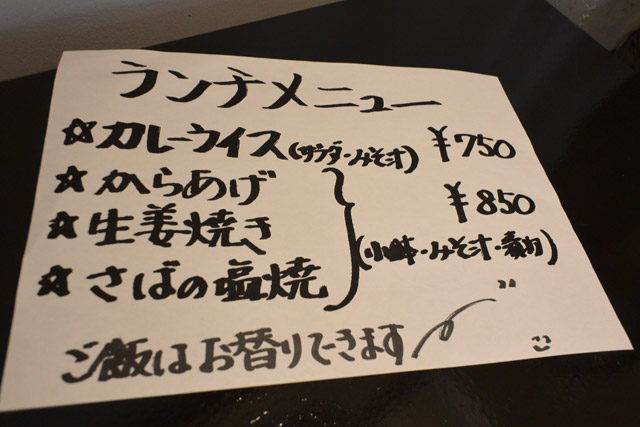 ランチメニュー
☆カレーライス(サラダ・みそ汁) ¥750
☆からあげ
☆生姜焼き ¥850
(小鉢・みそ汁・漬物)
☆さばの塩焼
ご飯はお替りできます